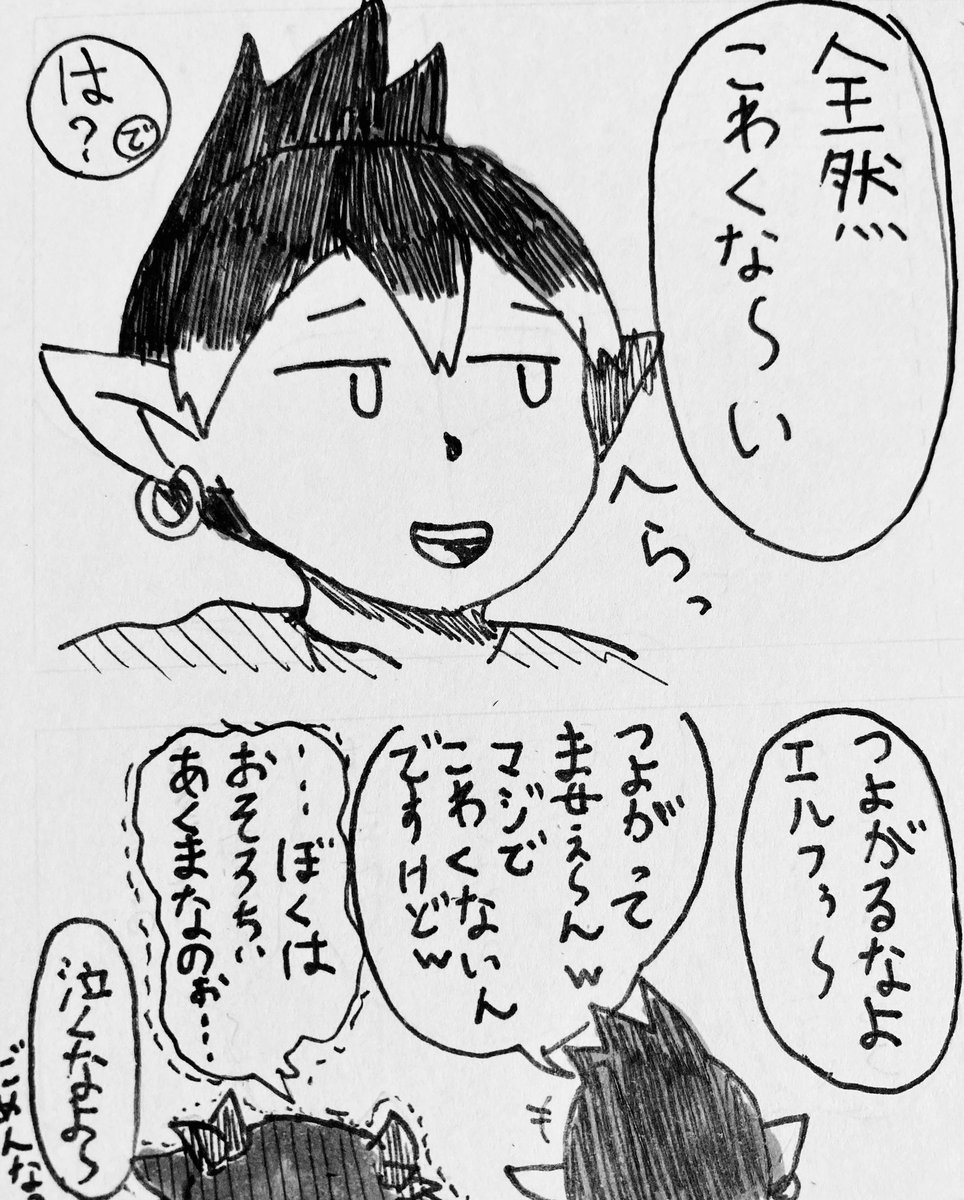 全然
こわくな〜い
へらっ
は?
で
つよがるなよ
エルフぅ〜
つよがって
ませぇ〜んw
マジで
こわくないん
ですけどw
…ぼくは
おそろちぃ
あくまなのぉ…
泣くなよ〜
ごめんな。